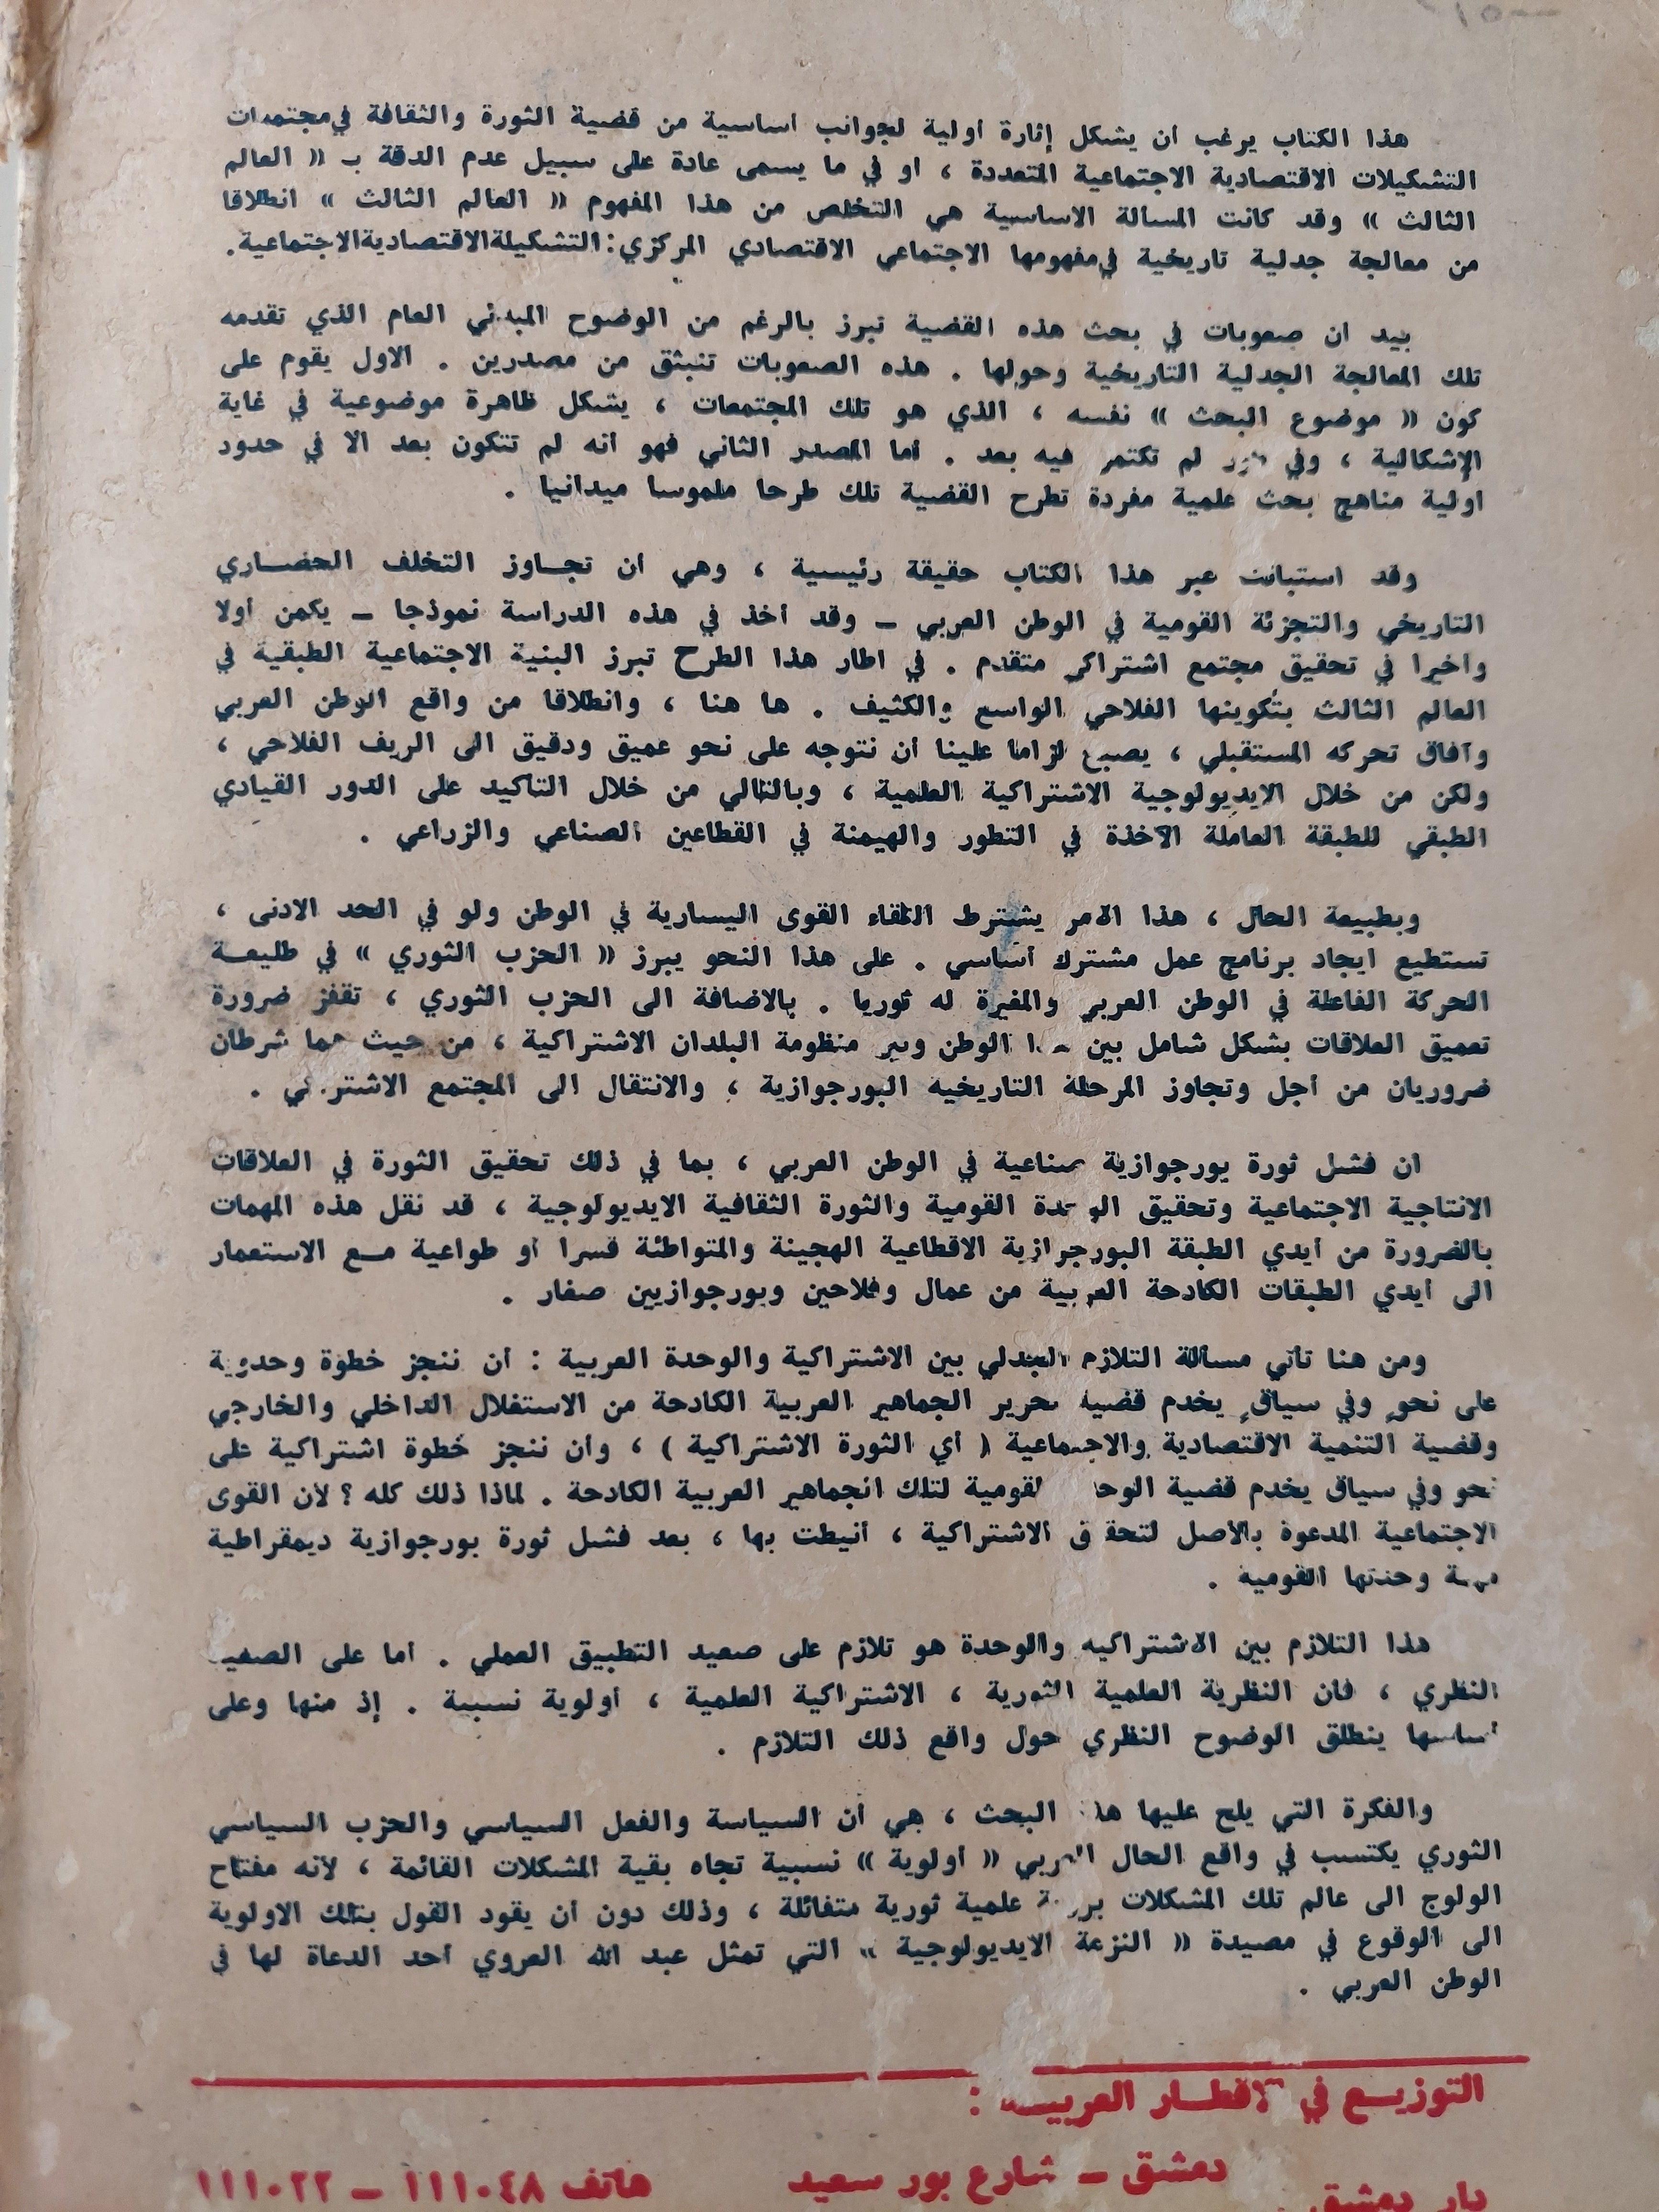 هذا الكتاب يرغب أن يشكل إثارة أولية لجوانب أساسية من قضية الثورة والثقافة في مجتمعات
التشكيلات الاقتصادية الاجتماعية المتعددة ، او في ما يسمى عادة على سبيل عدم الدقة بـ « العالم
الثالث » وقد كانت المسالة الاساسية هي التخلص من هذا المفهوم « العالم الثالث » انطلاقا
من معالجة جدلية تاريخية في مفهومها الاجتماعي الاقتصادي المركزي : التشكيلة الاقتصادية الاجتماعية .
بيد ان صعوبات في بحث هذه القضية تبرز بالرغم من الوضوح المبدئي العام الذي تقدمه
تلك المعالجة الجدلية التاريخية وحولها . هذه الصعوبات تنبثق من مصدرين . الاول يقوم على
كون « موضوع البحث » نفسه ، الذي هو تلك المجتمعات ، يشكل ظاهرة موضوعية في غاية
الإشكالية ، وفي لم تكتمل فيه بعد . أما المصدر الثاني فهو أنه لم تتكون بعد الا في حدود
اولية مناهج بحث علمية مفردة تطرح القضية تلك طرحا ملموسا ميدانيا .
وقد استبانت عبر هذا الكتاب حقيقة رئيسية ، وهي أن تجاوز التخلف الحضاري
التاريخي والتجزئة القومية في الوطن العربي – وقد أخذ في هذه الدراسة نموذجا – يكمن أولا
واخيرا في تحقيق مجتمع اشتراكي متقدم . في اطار هذا الطرح تبرز البنية الاجتماعية الطبقية في
العالم الثالث بتكوينها الفلاحي الواسع والكثيف . ها هنا ، وانطلاقا من واقع الوطن العربي
وآفاق تحركه المستقبلي ، يصبح لزاما علينا أن نتوجه على نحو عميق ودقيق الى الريف الفلاحي ،
ولكن من خلال الايديولوجية الاشتراكية العلمية ، وبالتالي من خلال التاكيد على الدور القيادي
الطبقي للطبقة العاملة الآخذة في التطور والهيمنة في القطاعين الصناعي والزراعي .
وبطبيعة الحال ، هذا الامر يشترط التقاء القوى اليسارية في الوطن ولو في الحد الادنى ،
تستطيع ايجاد برنامج عمل مشترك أساسي . على هذا النحو يبرز « الحزب الثوري » في طليعة
الحركة الفاعلة في الوطن العربي والمغيرة له ثوريا . بالاضافة الى الحزب الثوري ، تقفز ضرورة
تعميق العلاقات بشكل شامل بين هذا الوطن وبين منظومة البلدان الاشتراكية ، من حيث هما شرطان
ضروريان من أجل وتجاوز المرحلة التاريخية البورجوازية ، والانتقال الى المجتمع الاشتراكي .
ان فشل ثورة بورجوازية صناعية في الوطن العربي ، بما في ذلك تحقيق الثورة في العلاقات
الانتاجية الاجتماعية وتحقيق الوحدة القومية والثورة الثقافية الايديولوجية ، قد نقل هذه المهمات
بالضرورة من أيدي الطبقة البورجوازية الاقطاعية الهجينة والمتواطئة قسرا أو طواعية مع الاستعمار
الى أيدي الطبقات الكادحة العربية من عمال وفلاحين وبورجوازيين صغار .
ومن هنا تأتي مسألة التلازم الجدلي بين الاشتراكية والوحدة العربية : أن ننجز خطوة وحدوية
على نحوٍ وفي سياقٍ يخدم قضية تحرير الجماهير العربية الكادحة من الاستغلال الداخلي والخارجي
وقضية التنمية الاقتصادية والاجتماعية ( أي الثورة الاشتراكية ) ، وأن ننجز خطوة اشتراكية على
نحو وفي سياق يخدم قضية الوحدة القومية لتلك الجماهير العربية الكادحة . لماذا ذلك كله ؟ لأن القوى
الاجتماعية المدعوة بالأصل لتحقيق الاشتراكية ، أنيطت بها ، بعد فشل ثورة بورجوازية ديمقراطية
مهمة وحدتها القومية .
هذا التلازم بين الاشتراكية والوحدة هو تلازم على صعيد التطبيق العملي . اما على الصعيد
النظري ، فان النظرية العلمية الثورية ، الاشتراكية العلمية ، أولوية نسبية . إذ منها وعلى
أساسها ينطلق الوضوح النظري حول واقع ذلك التلازم .
والفكرة التي يلح عليها هذا البحث ، هي أن السياسة والفعل السياسي والحزب السياسي
الثوري يكتسب في واقع الحال العربي « أولوية » نسبية تجاه بقية المشكلات القائمة ، لأنه مفتاح
الولوج الى عالم تلك المشكلات علمية ثورية متفائلة ، وذلك دون أن يقود القول بتلك الاولوية
الى الوقوع في مصيدة « النزعة الايديولوجية » التي تمثل عبد الله العروي أحد الدعاة لها في
الوطن العربي .
التوزيع في الاقطار العربية :
دار دمشق . دمشق – شارع بور سعيد هاتف ١١١٠٤٨ – ١١١٠٢٢